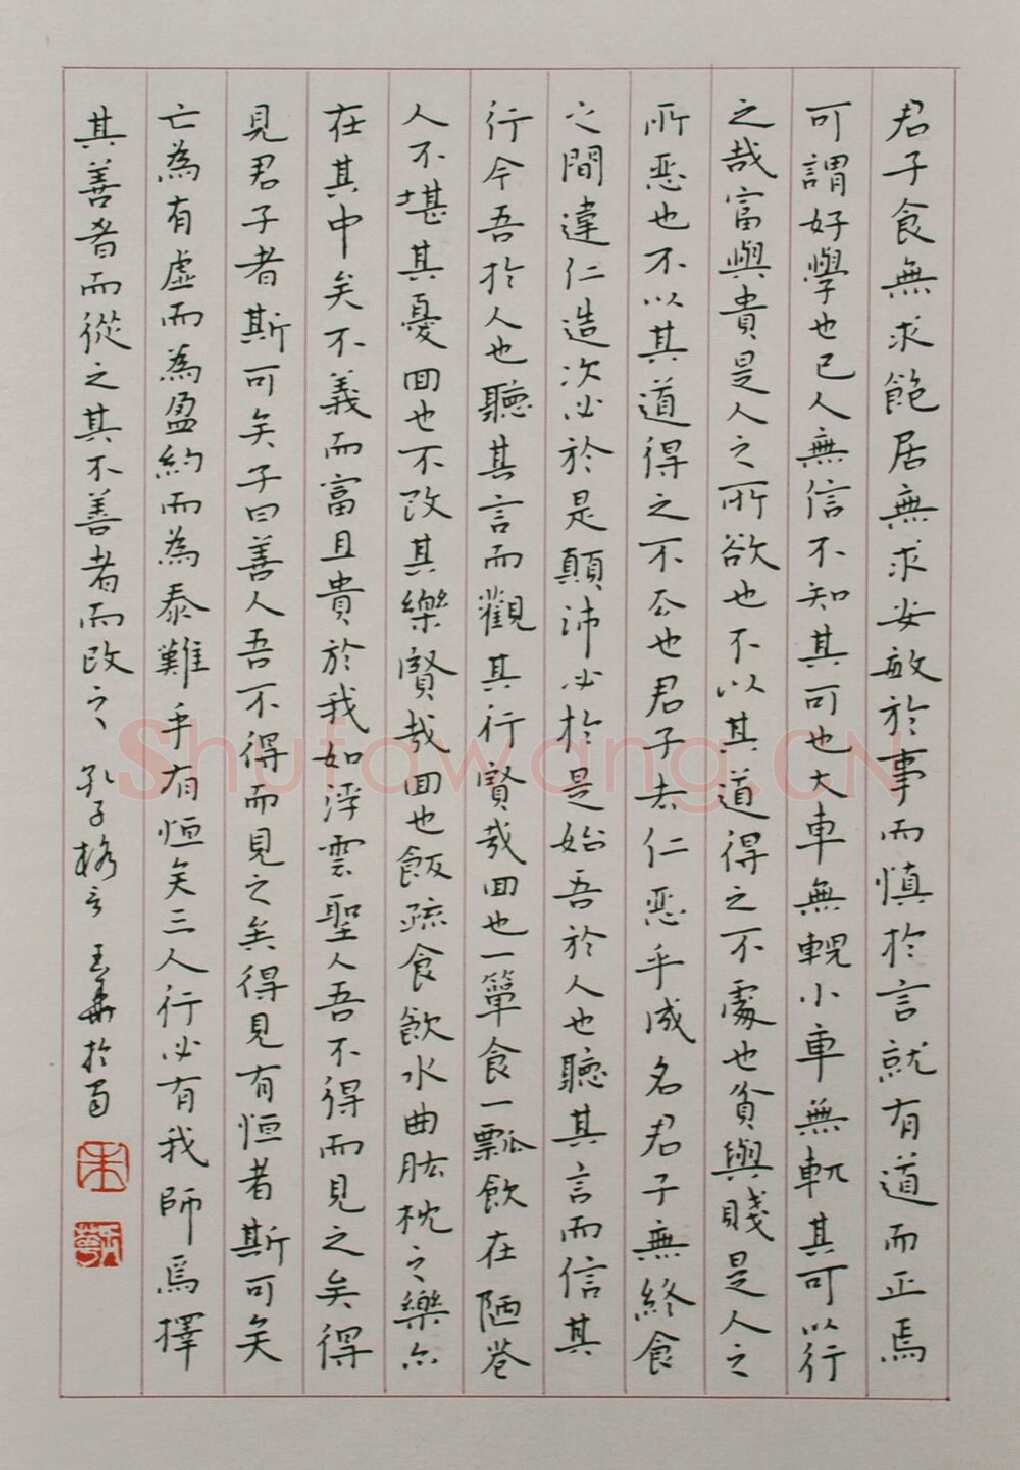 君子食無求飽居無求安敏於事而慎於言就有道而正焉
可謂好學也已人無信不知其可也大車無輗小車無軏其可以行
之哉富與貴是人之所欲也不以其道得之不處也貧與賤是人之
所惡也不以其道得之不去也君子去仁惡乎成名君子無終食
之間違仁造次必於是顛沛必於是始吾於人也聽其言而信其
行今吾於人也聽其言而觀其行賢哉回也一簞食一瓢飲在陋巷
人不堪其憂回也不改其樂賢哉回也飯疏食飲水曲肱枕之樂亦
在其中矣不義而富且貴於我如浮雲聖人吾不得而見之矣得
見君子者斯可矣子曰善人吾不得而見之矣得見有恒者斯可矣
亡為有虛而為盈約而為泰難乎有恒矣三人行必有我師焉擇
其善者而從之其不善者而改之 孔子格言 王 於
Shufawang.CN